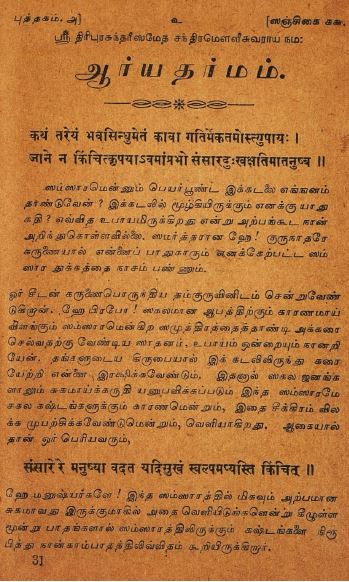 புத்தகம், அ] உ [ஸஞ்சிகை கக.
ஸ்ரீ திரிபுரசுந்தரீஸமேத சந்திரமௌளீசுவராய நம:
ஆர்யதர்மம்.
कथं तरेयं भवसिन्धुमेतं कावा गतिर्मेकतमोस्त्युपायः ।
जाने न किंचित्कृपयाऽवमांप्रभो संसारदुःखक्षतिमातनुष्व ॥
ஸம்ஸாரமென்னும் பெயர்பூண்ட இக்கடலை எங்ஙனம்
தாண்டுவேன்? இக்கடலில் மூழ்கியிருக்கும் எனக்கு யாது
கதி? எவ்வித உபாயமிருக்கிறது என்று அற்பங்கூட நான்
அறிந்துகொள்ளவில்லை. ஸமர்த்தரான ஹே! குருநாதரே
கருணையால் என்னைப் பாதுகாரும் எனக்கேற்பட்ட ஸம்
ஸார துக்கத்தை நாசம் பண்ணும்.
ஓர் சீடன் கருணைபொருந்திய தம்குருவினிடம் சென்றுவேண்
டுகிறான். ஹே பிரபோ! ஸகலமான ஆபத்திற்கும் காரணமாய்
விளங்கும் ஸம்ஸாரமென்கிற ஸமுத்திரத்தைத்தாண்டி அக்கரை
செல்வதற்கு வேண்டிய ஸாதனம், உபாயம் ஒன்றையும் நானறி
யேன். தங்களுடைய கிருபையால் இக் கடலிலிருந்து கரை
யேற்றி என்னை இரக்ஷிக்கவேண்டும். இதனால் ஸகல ஜனங்க
ளாலும் சுகமாய்க்கருதி யனுபவிக்கப்படும் இந்த ஸம்ஸாரமே
சகல கஷ்டங்களுக்கும் காரணமென்றும், இதை சீக்கிரம் வில
க்க முயற்சிக்கவேண்டுமென்றும், வெளியாகிறது, ஆகையால்
தான் ஓர் பெரியவரும்,
संसारे रे मनुष्या वदत यदिसुखं स्वल्पमप्यस्ति किंचित् ॥
ஹே மனுஷ்யர்களே! இந்த ஸம்ஸாரத்தில் மிகவும் அற்பமான
சுகமாவது இருக்குமாகில் அதை வெளியிடுங்களென்று கீழுள்ள
மூன்று பாதங்களால் ஸம்ஸாரத்திலிருக்கும் கஷ்டங்களை நிரூ
பித்து நான்காம்பாதத்தில்இவ்விதம் கூறியிருக்கிறார்.
31